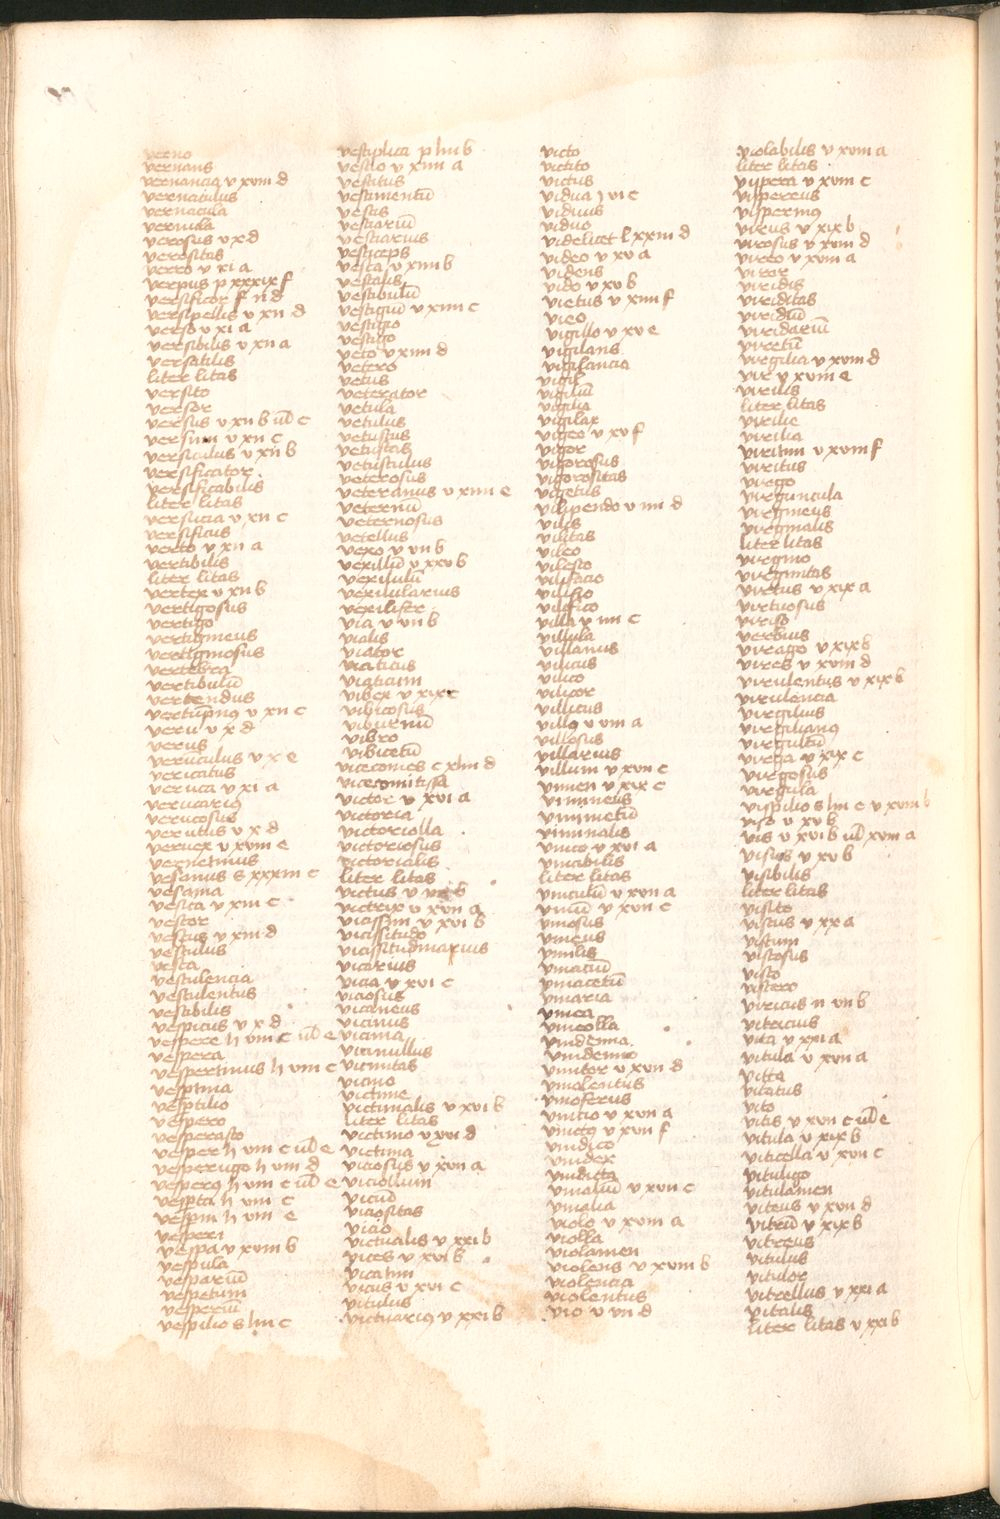 verno
vernans
vernancia v xvm d
vernaculus
vernacula
vernula
verosus v x d
verositas
verro v xi a
verpus p xxxix f
versificor f n d
versipellis v xn d
verso v xi a
versibilis v xn a
versatilis
liter litas
versito
versor
versus v xn b ul c
versum v xn c
versiculus v xn b
versificator
versificabilis
liter litas
versucia v xn c
versificus
verto v xn a
vertibilis
liter litas
vertex v xn b
vertigosus
vertigo
vertigineus
vertiginosus
vertebra
vertibulū
vertendus
vertūpnus v xn c
veru v x d
verus
verūculus v x e
vericatus
veruca v xi a
verucarius
verucosus
verutus v x d
vervex v xvm e
vervecinus
vesanus s xxxm c
vesania
vesica v xm c
vestor
vescus v xm d
vesculus
vesca
vesculencia
vesculentus
vescibilis
vespicus v x d
vespere h vm c ul e
vespera
vespertinus h vm c
vespertina
vespertilio
vespero
vesperasco
vesper h vm c ul e
vesperugo h vm d
vesperus h vm c ul e
vesperta h vm c
vesperi h vm e
vesperi
vespa v xvm b
vespula
vespariū
vespetum
vesperiū
vespilio s lm c
vestiplica p lm b
vestio v xm a
vestitus
vestimentū
vestis
vestiariū
vestiarius
vesticeps
vesta v xnn b
vestalis
vestibulū
vestigiū v xnn c
vestigio
vestigo
veto v xnn d
vetero
vetus
veterator
vetula
vetulus
vetustus
vetustas
vetustulus
veterosus
veteranus v xnn e
veternū
veternosus
vetellus
vexo v vn b
vexillū v xxv b
vexillulū
vexillularius
vexillifer
via v vn b
vialis
viator
viaticus
viaticum
vibex v xix c
vibicosus
viburnū
vibro
vibicetū
vicecomes c xlm d
vicecomitissa
victor v xvi a
victoria
victoriolla
victoriosus
victorialis
liter litas
victus v xvi b
victrix v xvn a
vicissim v xvi b
vicissitudo
vicissitudinarius
vicarius
vicia v xvi c
viciosus
vicaneus
vicinus
vicinia
vicinullus
vicinitas
vicino
vicinine
victimalis v xvi b
liter litas
victimo v xvi d
victima
viciosus v xvn a
viciollum
viciū
viciositas
vicio
victualis v xxi b
vices v xvi b
vicatim
vicus v xvi c
vitulus
victuarius v xxi b
victo
victito
victus
vidua i vi c
viduus
viduo
videlicet l xxm d
video v xv a
videns
vido v xv b
vietus v xnn f
vieo
vigillo v xv e
vigilans
vigilancia
vigil
vigiliū
vigilia
vigilax
vigeo v xv f
vigor
vigorosus
vigorositas
vigetus
vilipendo v nn d
vilis
vilitas
vileo
vilesco
vilifacio
vilifio
vilifico
villa v nn c
villula
villanus
vilicus
vilico
vilicor
villicus
villus v vm a
villosus
villarius
villum v xvn c
vimen v xix c
vimineus
viminetū
viminalis
vinco v xvi a
vincibilis
liter litas
vinculū v xvn a
vinū v xvn c
vinosus
vineus
vinilis
vinaciū
vinacetū
vinaria
vinea
vineolla
vindemia
vindemio
vinitor v xvn d
vinolentus
vinoferus
vincio v xvn a
vinctus v xvn f
vindico
vindex
vindicta
vinaliū v xvn c
vinalia
violo v xvm a
violla
violamen
violens v xvm b
violencia
violentus
vio v vn d
violabilis v xvm a
liter litas
vipera v xvm c
vipereus
vispermus
virus v xix b
virosus v xvm d
vireo v xvm a
viror
viridis
viriditas
viridiū
viridariū
viretū
virgilia v xvm d
vir v xvm e
virilis
liter litas
virilie
virilia
viritim v xvm f
viritus
virgo
virguncula
virgineus
virginalis
liter litas
virgino
virginitas
virtus v xix a
virtuosus
viriso
verbius
virago v xix b
vires v xvm d
virulentus v xix b
virulencia
virgilius
virgilianus
virgultū
virga v xix c
virgosus
virgula
vispilio s lm c v xvm b
viso v xv b
vis v xvi b ul xvm a
visus v xv b
visibilis
liter litas
visito
viscus v xx a
viscum
viscosus
visco
viscero
vitricus n vn b
vitricius
vita v xxi a
vitula v xvn a
vitta
vitatus
vito
vitis v xvn c ul e
vitula v xix b
viticella v xvn c
vituligo
vitulamen
viteus v xvn d
vitrū v xix b
vitreus
vitulus
vitulor
vitellus v xxi a
vitalis
liter litas v xxi b